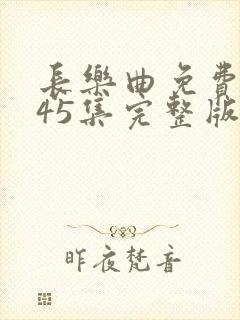 長樂曲免費
45集完整版
昨夜梵音